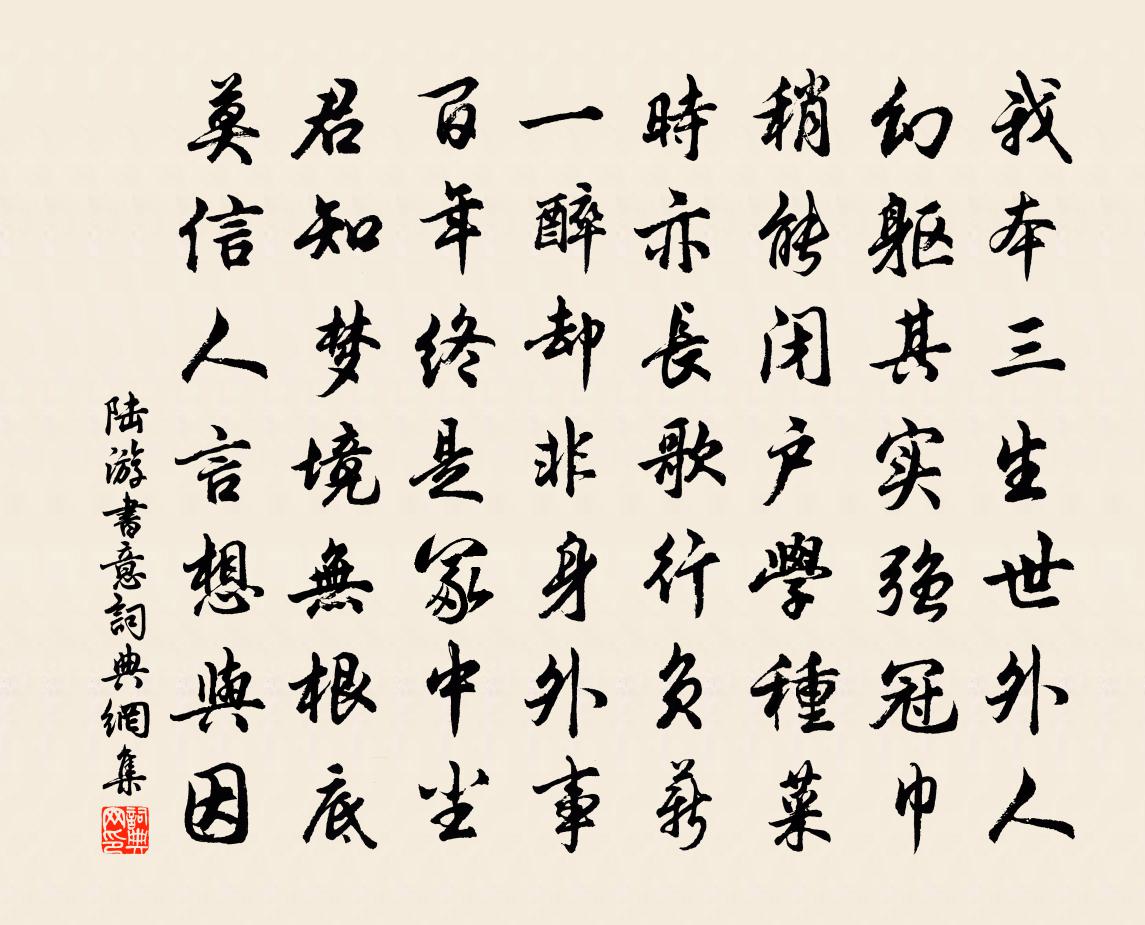 我本三生世外人
幻躯其实强冠巾
稍能闭户學種菜
時亦長歌行负薪
一醉却非身外事
百年终是冢中尘
君知梦境無根底
莫信人言想與因
陆游書意詞典網集
詞典网印